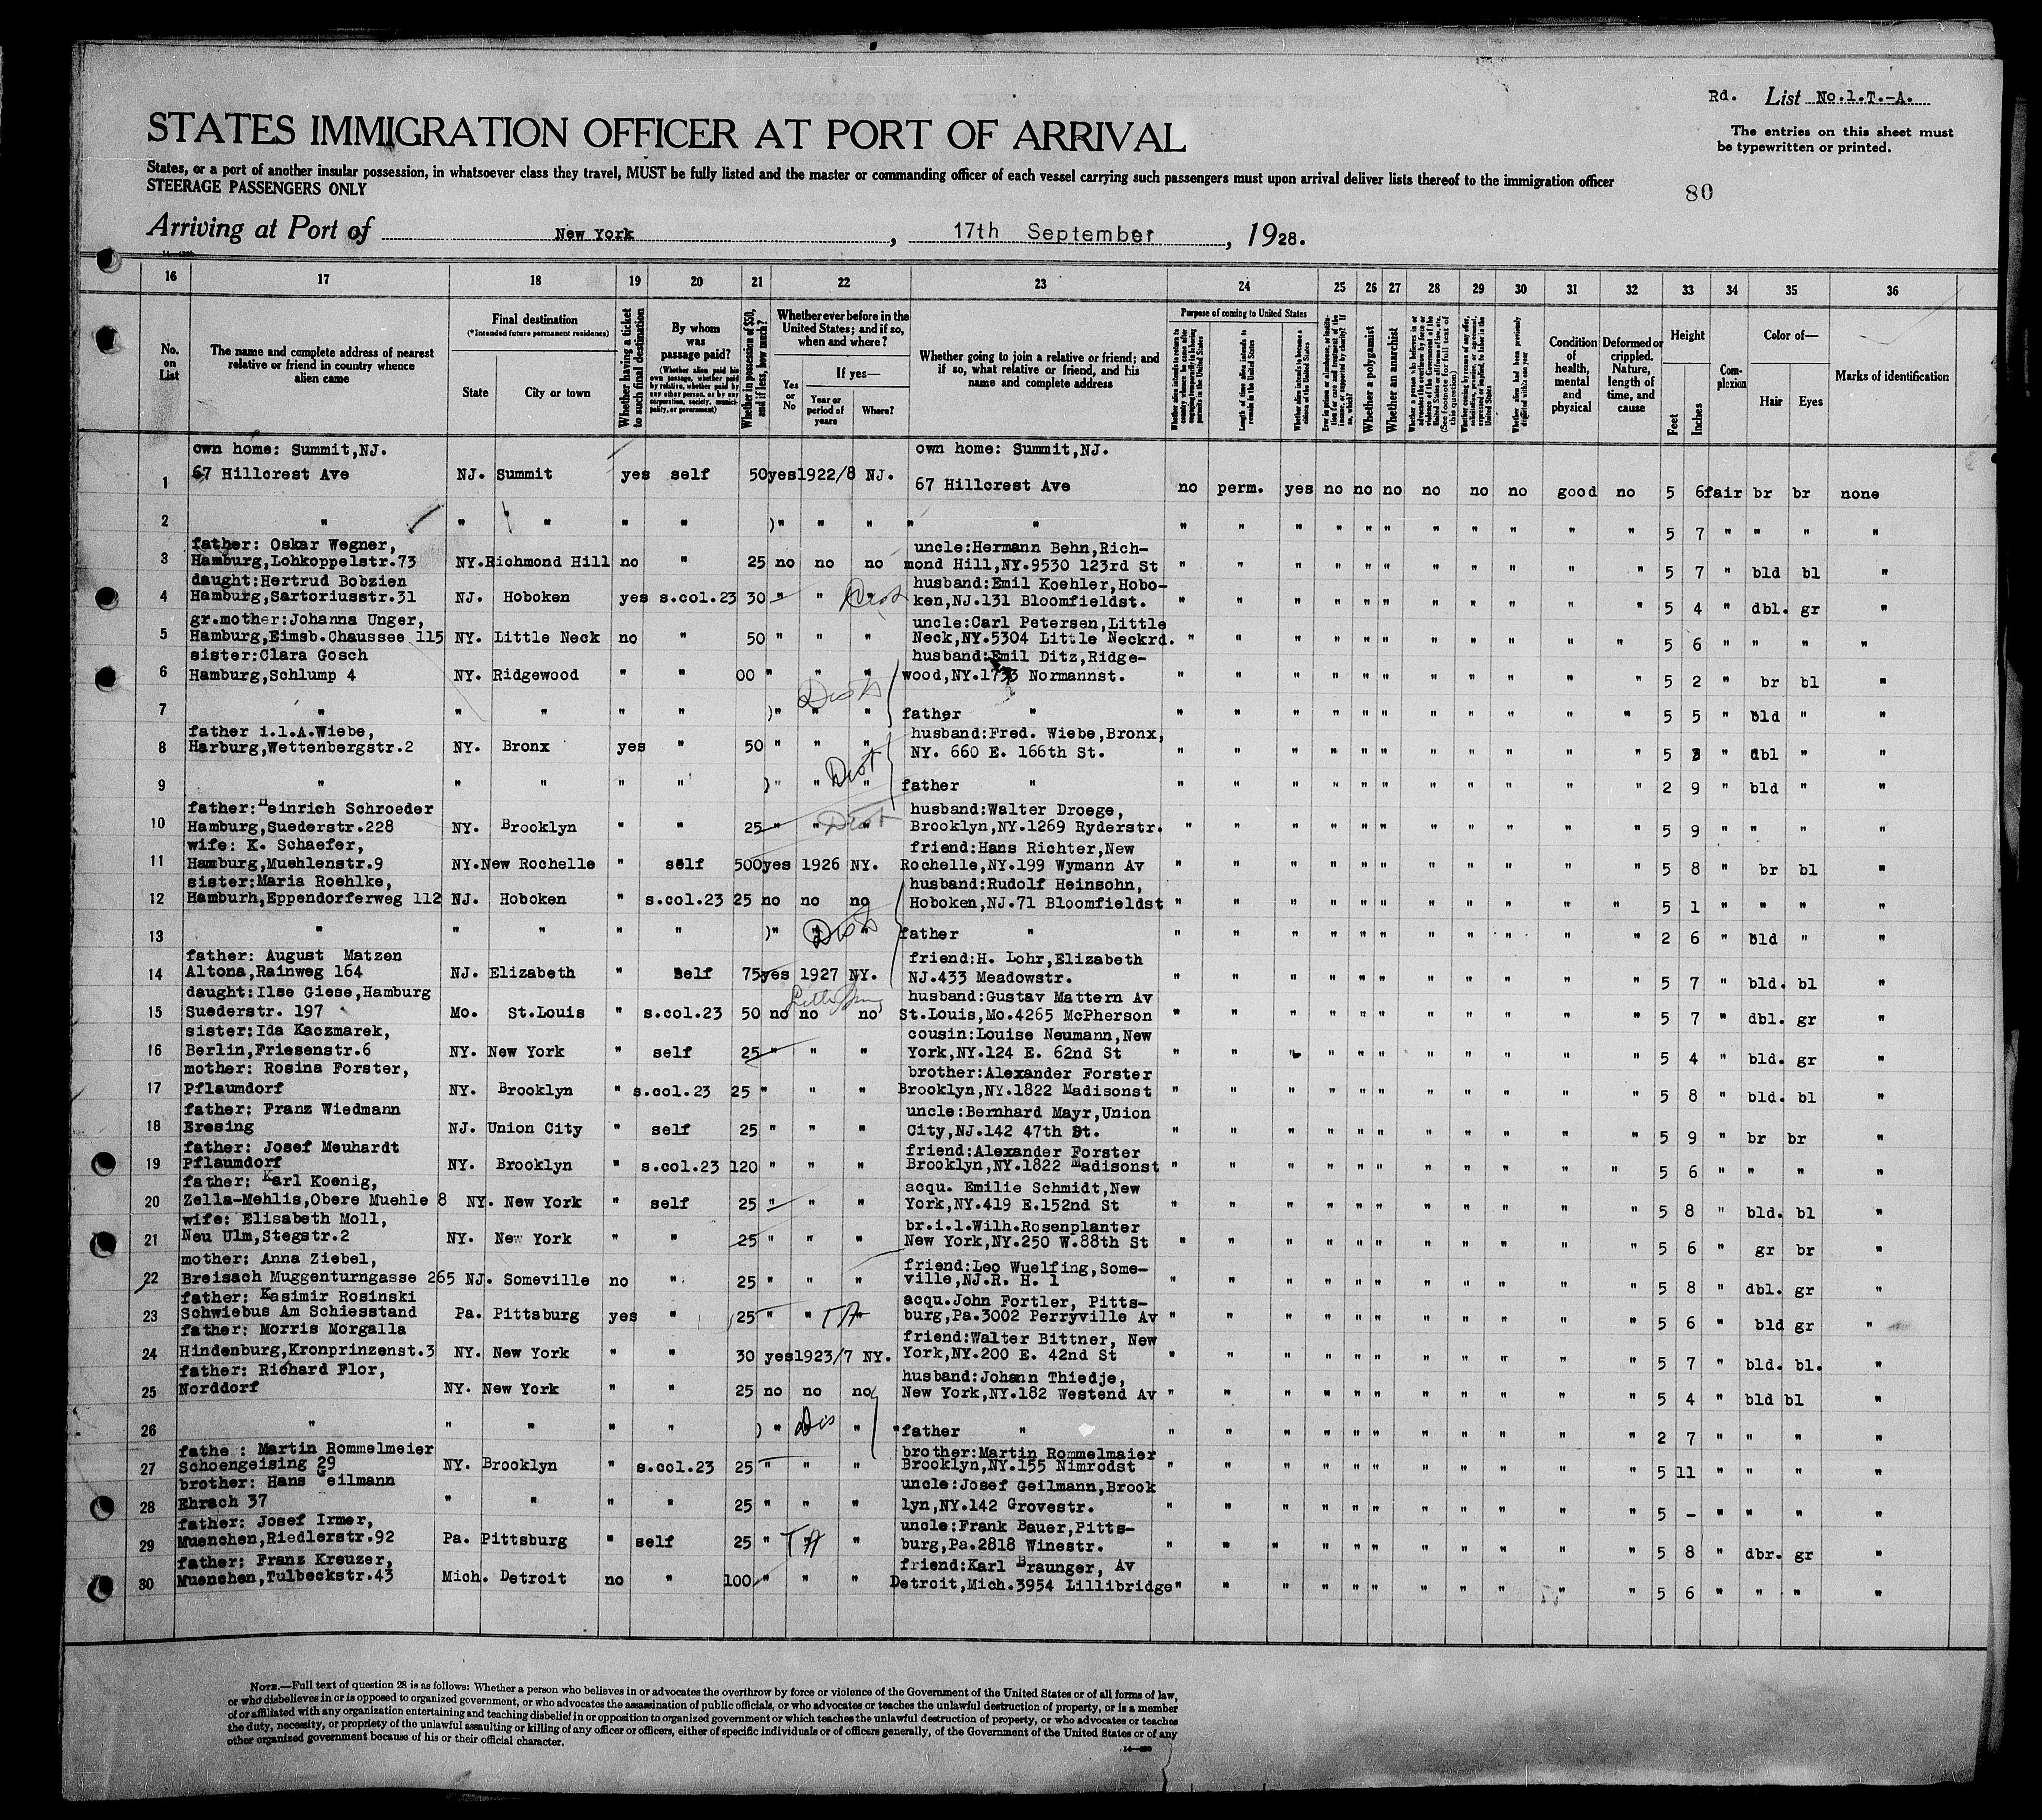 Rd. List No.1.T.-A.
STATES IMMIGRATION OFFICER AT PORT OF ARRIVAL
The entries on this sheet must
be typewritten or printed.
States, or a port of another insular possession, in whatsoever class they travel, MUST be fully listed and the master or commanding officer of each vessel carrying such passengers must upon arrival deliver lists thereof to the immigration officer
STEERAGE PASSENGERS ONLY
80
Arriving at Port of New York, 17th September, 1928.
16 17 18 19 20 21 22 23 24 25 26 27 28 29 30 31 32 33 34 35 36
No. on List
The name and complete address of nearest relative or friend in country whence alien came
Final destination
(*Intended future permanent residence)
State City or town
Whether having a ticket to such final destination
By whom was passage paid?
(Whether alien paid his own passage, whether paid by relative, whether paid by any other person, or by any corporation, society, municipality, or government)
Whether in possession of $50, and if less, how much?
Whether ever before in the United States; and if so, when and where?
Yes or No
If yes—
Year or period of years
Where?
Whether going to join a relative or friend; and if so, what relative or friend, and his name and complete address
Purpose of coming to United States
Length of time alien intends to remain in the United States
Whether alien intends to become a citizen of the United States
Whether a polygamist
Whether an anarchist
Condition of health, mental and physical
Deformed or crippled. Nature, length of time, and cause
Height
Feet Inches
Complexion
Color of—
Hair Eyes
Marks of identification
own home: Summit,NJ. own home: Summit,NJ.
1 67 Hillcrest Ave NJ. Summit yes self 50 yes 1922/8 NJ. 67 Hillcrest Ave no perm. yes no no no no no no good no 5 6 fair br br none
2 " " " " " )" " " " " " " " " " " " " " " " 5 7 " " " "
father: Oskar Wegner, uncle:Hermann Behn,Rich-
3 Hamburg,Lohkoppelstr.73 NY. Richmond Hill no " 25 no no no mond Hill,NY.9530 123rd St " " " " " " " " " " " 5 7 " bld bl "
daught:Hertrud Bobzien husband:Emil Koehler,Hobo-
4 Hamburg,Sartoriusstr.31 NJ. Hoboken yes s.col.23 30 " " " ken,NJ.131 Bloomfieldst. " " " " " " " " " " " 5 4 " dbl. gr "
gr.mother:Johanna Unger, uncle:Carl Petersen,Little
5 Hamburg,Eimsb.Chaussee 115 NY. Little Neck no " 50 " " " Neck,NY.5304 Little Neckrd. " " " " " " " " " " " 5 6 " " " "
sister:Clara Gosch husband:Emil Ditz,Ridge-
6 Hamburg,Schlump 4 NY. Ridgewood " " 00 " " " wood,NY.1733 Normannst. " " " " " " " " " " " 5 2 " br bl "
7 " " " " " )" " " father " " " " " " " " " " " " 5 5 " bld " "
father i.l.A.Wiebe, husband:Fred. Wiebe,Bronx,
8 Harburg,Wettenbergstr.2 NY. Bronx yes " 50 " " " NY. 660 E. 166th St. " " " " " " " " " " " 5 3 " dbl " "
9 " " " " " )" " " father " " " " " " " " " " " " 2 9 " bld " "
father:Heinrich Schroeder husband:Walter Droege,
10 Hamburg,Suederstr.228 NY. Brooklyn " " 25 " " " Brooklyn,NY.1269 Ryderstr. " " " " " " " " " " " 5 9 " " " "
wife: K. Schaefer, friend:Hans Richter,New
11 Hamburg,Muehlenstr.9 NY. New Rochelle " self 500 yes 1926 NY. Rochelle,NY.199 Wymann Av " " " " " " " " " " " 5 8 " br bl "
sister:Maria Roehlke, husband:Rudolf Heinsohn,
12 Hamburh,Eppendorferweg 112 NJ. Hoboken " s.col.23 25 no no no Hoboken,NJ.71 Bloomfieldst " " " " " " " " " " " 5 1 " " " "
13 " " " " " )" " " father " " " " " " " " " " " " 2 6 " bld " "
father: August Matzen friend:H. Lohr,Elizabeth
14 Altona,Rainweg 164 NJ. Elizabeth " self 75 yes 1927 NY. NJ.433 Meadowstr. " " " " " " " " " " " 5 7 " bld. bl "
daught:Ilse Giese,Hamburg husband:Gustav Mattern Av
15 Suederstr. 197 Mo. St.Louis " s.col.23 50 no no no St.Louis,Mo.4265 McPherson " " " " " " " " " " " 5 7 " dbl. gr "
sister:Ida Kaczmarek, cousin:Louise Neumann,New
16 Berlin,Friesenstr.6 NY. New York " self 25 " " " York,NY.124 E. 62nd St " " " " " " " " " " " 5 4 " bld. gr "
mother: Rosina Forster, brother:Alexander Forster
17 Pflaumdorf NY. Brooklyn " s.col.23 25 " " " Brooklyn,NY.1822 Madisonst " " " " " " " " " " " 5 8 " bld. bl "
father: Franz Wiedmann uncle:Bernhard Mayr,Union
18 Eresing NJ. Union City " self 25 " " " City,NJ.142 47th St. " " " " " " " " " " " 5 9 " br br "
father: Josef Meuhardt friend:Alexander Forster
19 Pflaumdorf NY. Brooklyn " s.col.23 120 " " " Brooklyn,NY.1822 Madisonst " " " " " " " " " " " 5 6 " " " "
father: Karl Koenig, acqu. Emilie Schmidt,New
20 Zella-Mehlis,Obere Muehle 8 NY. New York " self 25 " " " York,NY.419 E.152nd St " " " " " " " " " " " 5 8 " bld. bl "
wife: Elisabeth Moll, br.i.l.Wilh.Rosenplanter
21 Neu Ulm,Stegstr.2 NY. New York " " 25 " " " New York,NY.250 W.88th St " " " " " " " " " " " 5 6 " gr br "
mother: Anna Ziebel, friend:Leo Wuelfing,Some-
22 Breisach Muggenturngasse 265 NJ. Someville no " 25 " " " ville,NJ.R. H. 1 " " " " " " " " " " " 5 8 " dbl. gr "
father: Kasimir Rosinski acqu.John Fortler, Pitts-
23 Schwiebus Am Schiesstand Pa. Pittsburg yes " 25 " " TA " burg,Pa.3002 Perryville Av " " " " " " " " " " " 5 6 " bld gr "
father: Morris Morgalla friend:Walter Bittner, New
24 Hindenburg,Kronprinzenst.3 NY. New York " " 30 yes 1923/7 NY. York,NY.200 E. 42nd St " " " " " " " " " " " 5 7 " bld. bl. "
father: Richard Flor, husband:Johann Thiedje,
25 Norddorf NY. New York " " 25 no no no New York,NY.182 Westend Av " " " " " " " " " " " 5 4 " bld bl "
26 " " " " " ) " " " "father " " " " " " " " " " " " 2 7 " " " "
fathe : Martin Rommelmeier brother:Martin Rommelmaier
27 Schoengeising 29 NY. Brooklyn " s.col.23 25 " " " Brooklyn,NY.155 Nimrodst " " " " " " " " " " " 5 11 " " " "
brother: Hans Geilmann uncle:Josef Geilmann,Brook
28 Ehrach 37 " " " " 25 " " " lyn,NY.142 Grovestr. " " " " " " " " " " " 5 - " " " "
father: Josef Irmer, uncle:Frank Bauer,Pitts-
29 Muenchen,Riedlerstr.92 Pa. Pittsburg " self 25 " TA " burg,Pa.2818 Winestr. " " " " " " " " " " " 5 8 " dbr. gr "
father: Franz Kreuzer, friend:Karl Braunger, Av
30 Muenchen,Tulbeckstr.43 Mich. Detroit no " 100 " " " Detroit,Mich.3954 Lillibridge " " " " " " " " " " " 5 6 " " " "
NOTE.—Full text of question 28 is as follows: Whether a person who believes in or advocates the overthrow by force or violence of the Government of the United States or of all forms of law,
or who disbelieves in or is opposed to organized government, or who advocates the assassination of public officials, or who advocates or teaches the unlawful destruction of property, or is a member
of or affiliated with any organization entertaining and teaching disbelief in or opposition to organized government or which teaches the unlawful destruction of property, or who advocates or teaches
the duty, necessity, or propriety of the unlawful assaulting or killing of any officer or officers, either of specific individuals or of officers generally, of the Government of the United States or of any
other organized government because of his or their official character.